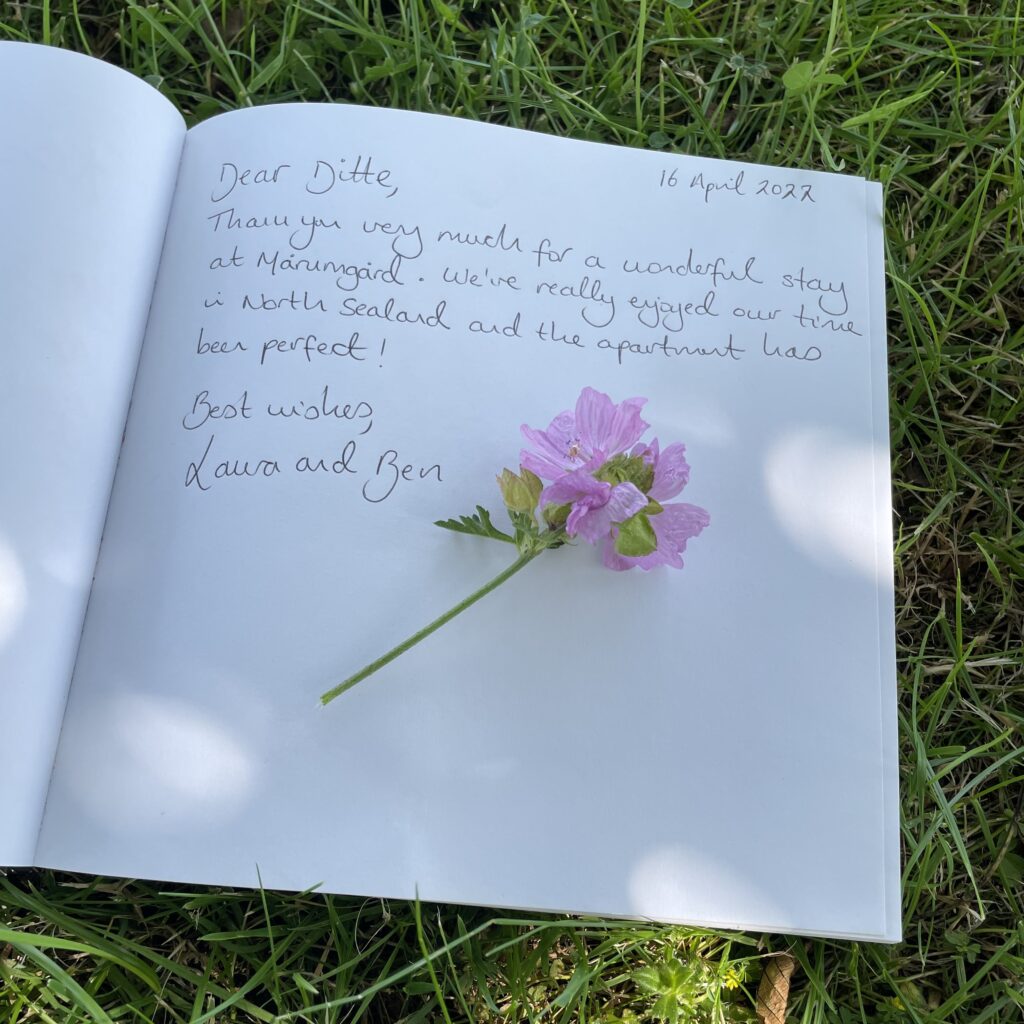 16 April 2022
Dear Ditte,
Thank you very much for a wonderful stay
at Mårumgård. We've really enjoyed our time
in North Sealand and the apartment has
been perfect!
Best wishes,
Laura and Ben